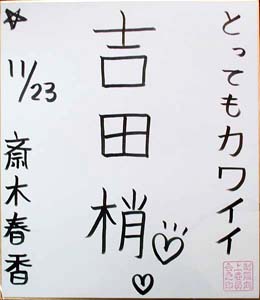 とってもカワイイ
吉田梢
11/23
斎木春香